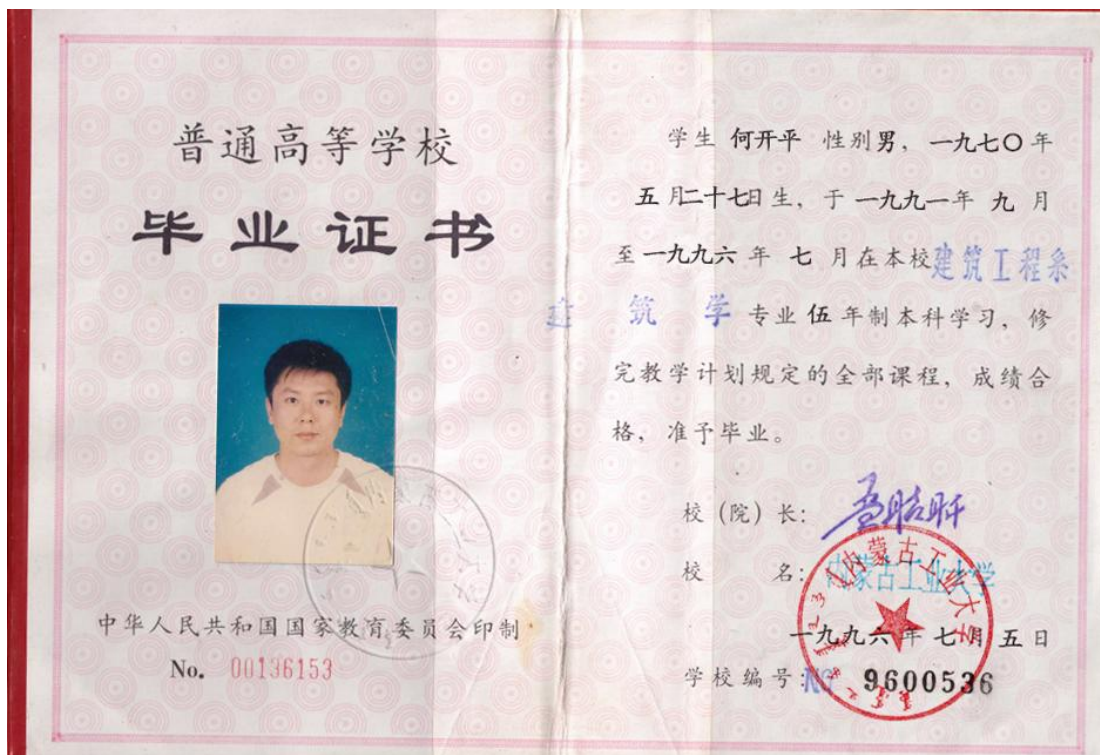 普通高等学校
毕业证书
中华人民共和国国家教育委员会印制
No. 00136153
学生 何开平 性别男，一九七〇年
五月二十七日生，于一九九一年 九月
至一九九六年 七月在本校建筑工程系
建筑学专业伍年制本科学习，修
完教学计划规定的全部课程，成绩合
格，准予毕业。
校（院）长：
校 名：内蒙古工业大学
一九九六年七月五日
学校编号：NG 9600536
内蒙古工业大学